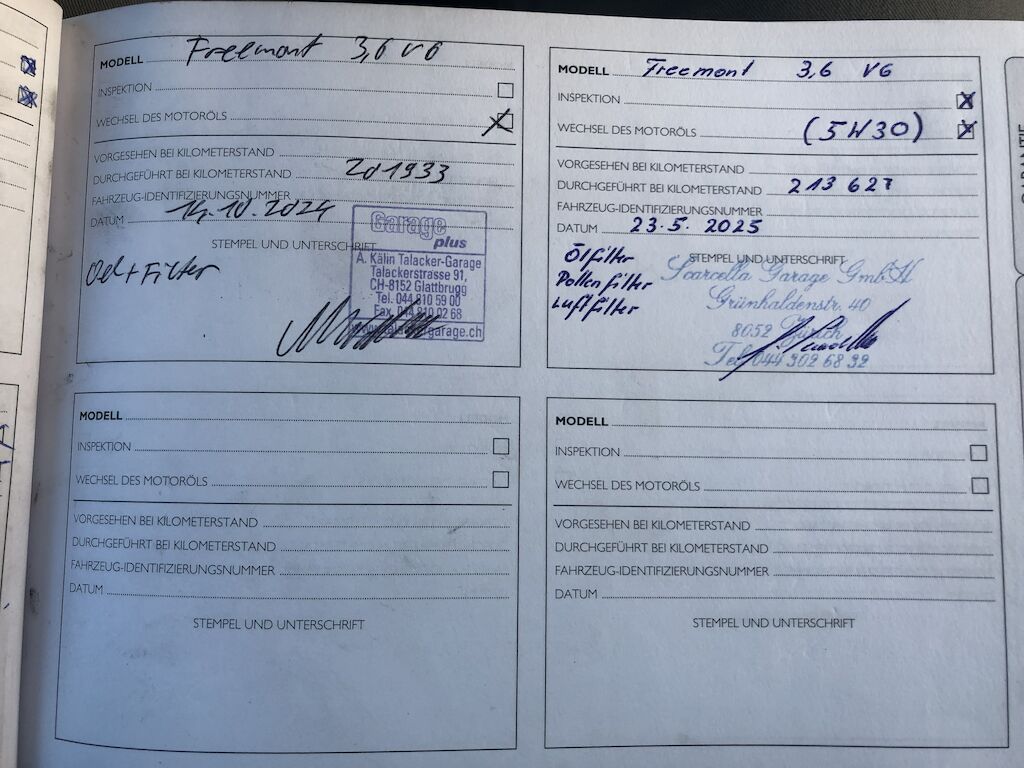 MODELL Freemont 3,6 V6
INSPEKTION
WECHSEL DES MOTORÖLS
VORGESEHEN BEI KILOMETERSTAND
DURCHGEFÜHRT BEI KILOMETERSTAND 201933
FAHRZEUG-IDENTIFIZIERUNGSNUMMER
DATUM 14.10.2024
STEMPEL UND UNTERSCHRIFT
Oel + Filter
Garage
plus
A. Kälin Talacker-Garage
Talackerstrasse 91
CH-8152 Glattbrugg
Tel. 044 810 59 00
Fax 044 810 02 68
www.talackergarage.ch
MODELL Freemont 3,6 V6
INSPEKTION
WECHSEL DES MOTORÖLS (5W30)
VORGESEHEN BEI KILOMETERSTAND
DURCHGEFÜHRT BEI KILOMETERSTAND 213 627
FAHRZEUG-IDENTIFIZIERUNGSNUMMER
DATUM 23.5. 2025
STEMPEL UND UNTERSCHRIFT
Ölfilter
Pollenfilter
Luftfilter
Scarcella Garage GmbH
Grünhaldenstr. 40
8052 Zürich
Tel. 044 302 68 32
MODELL
INSPEKTION
WECHSEL DES MOTORÖLS
VORGESEHEN BEI KILOMETERSTAND
DURCHGEFÜHRT BEI KILOMETERSTAND
FAHRZEUG-IDENTIFIZIERUNGSNUMMER
DATUM
STEMPEL UND UNTERSCHRIFT
MODELL
INSPEKTION
WECHSEL DES MOTORÖLS
VORGESEHEN BEI KILOMETERSTAND
DURCHGEFÜHRT BEI KILOMETERSTAND
FAHRZEUG-IDENTIFIZIERUNGSNUMMER
DATUM
STEMPEL UND UNTERSCHRIFT
GARANTIE